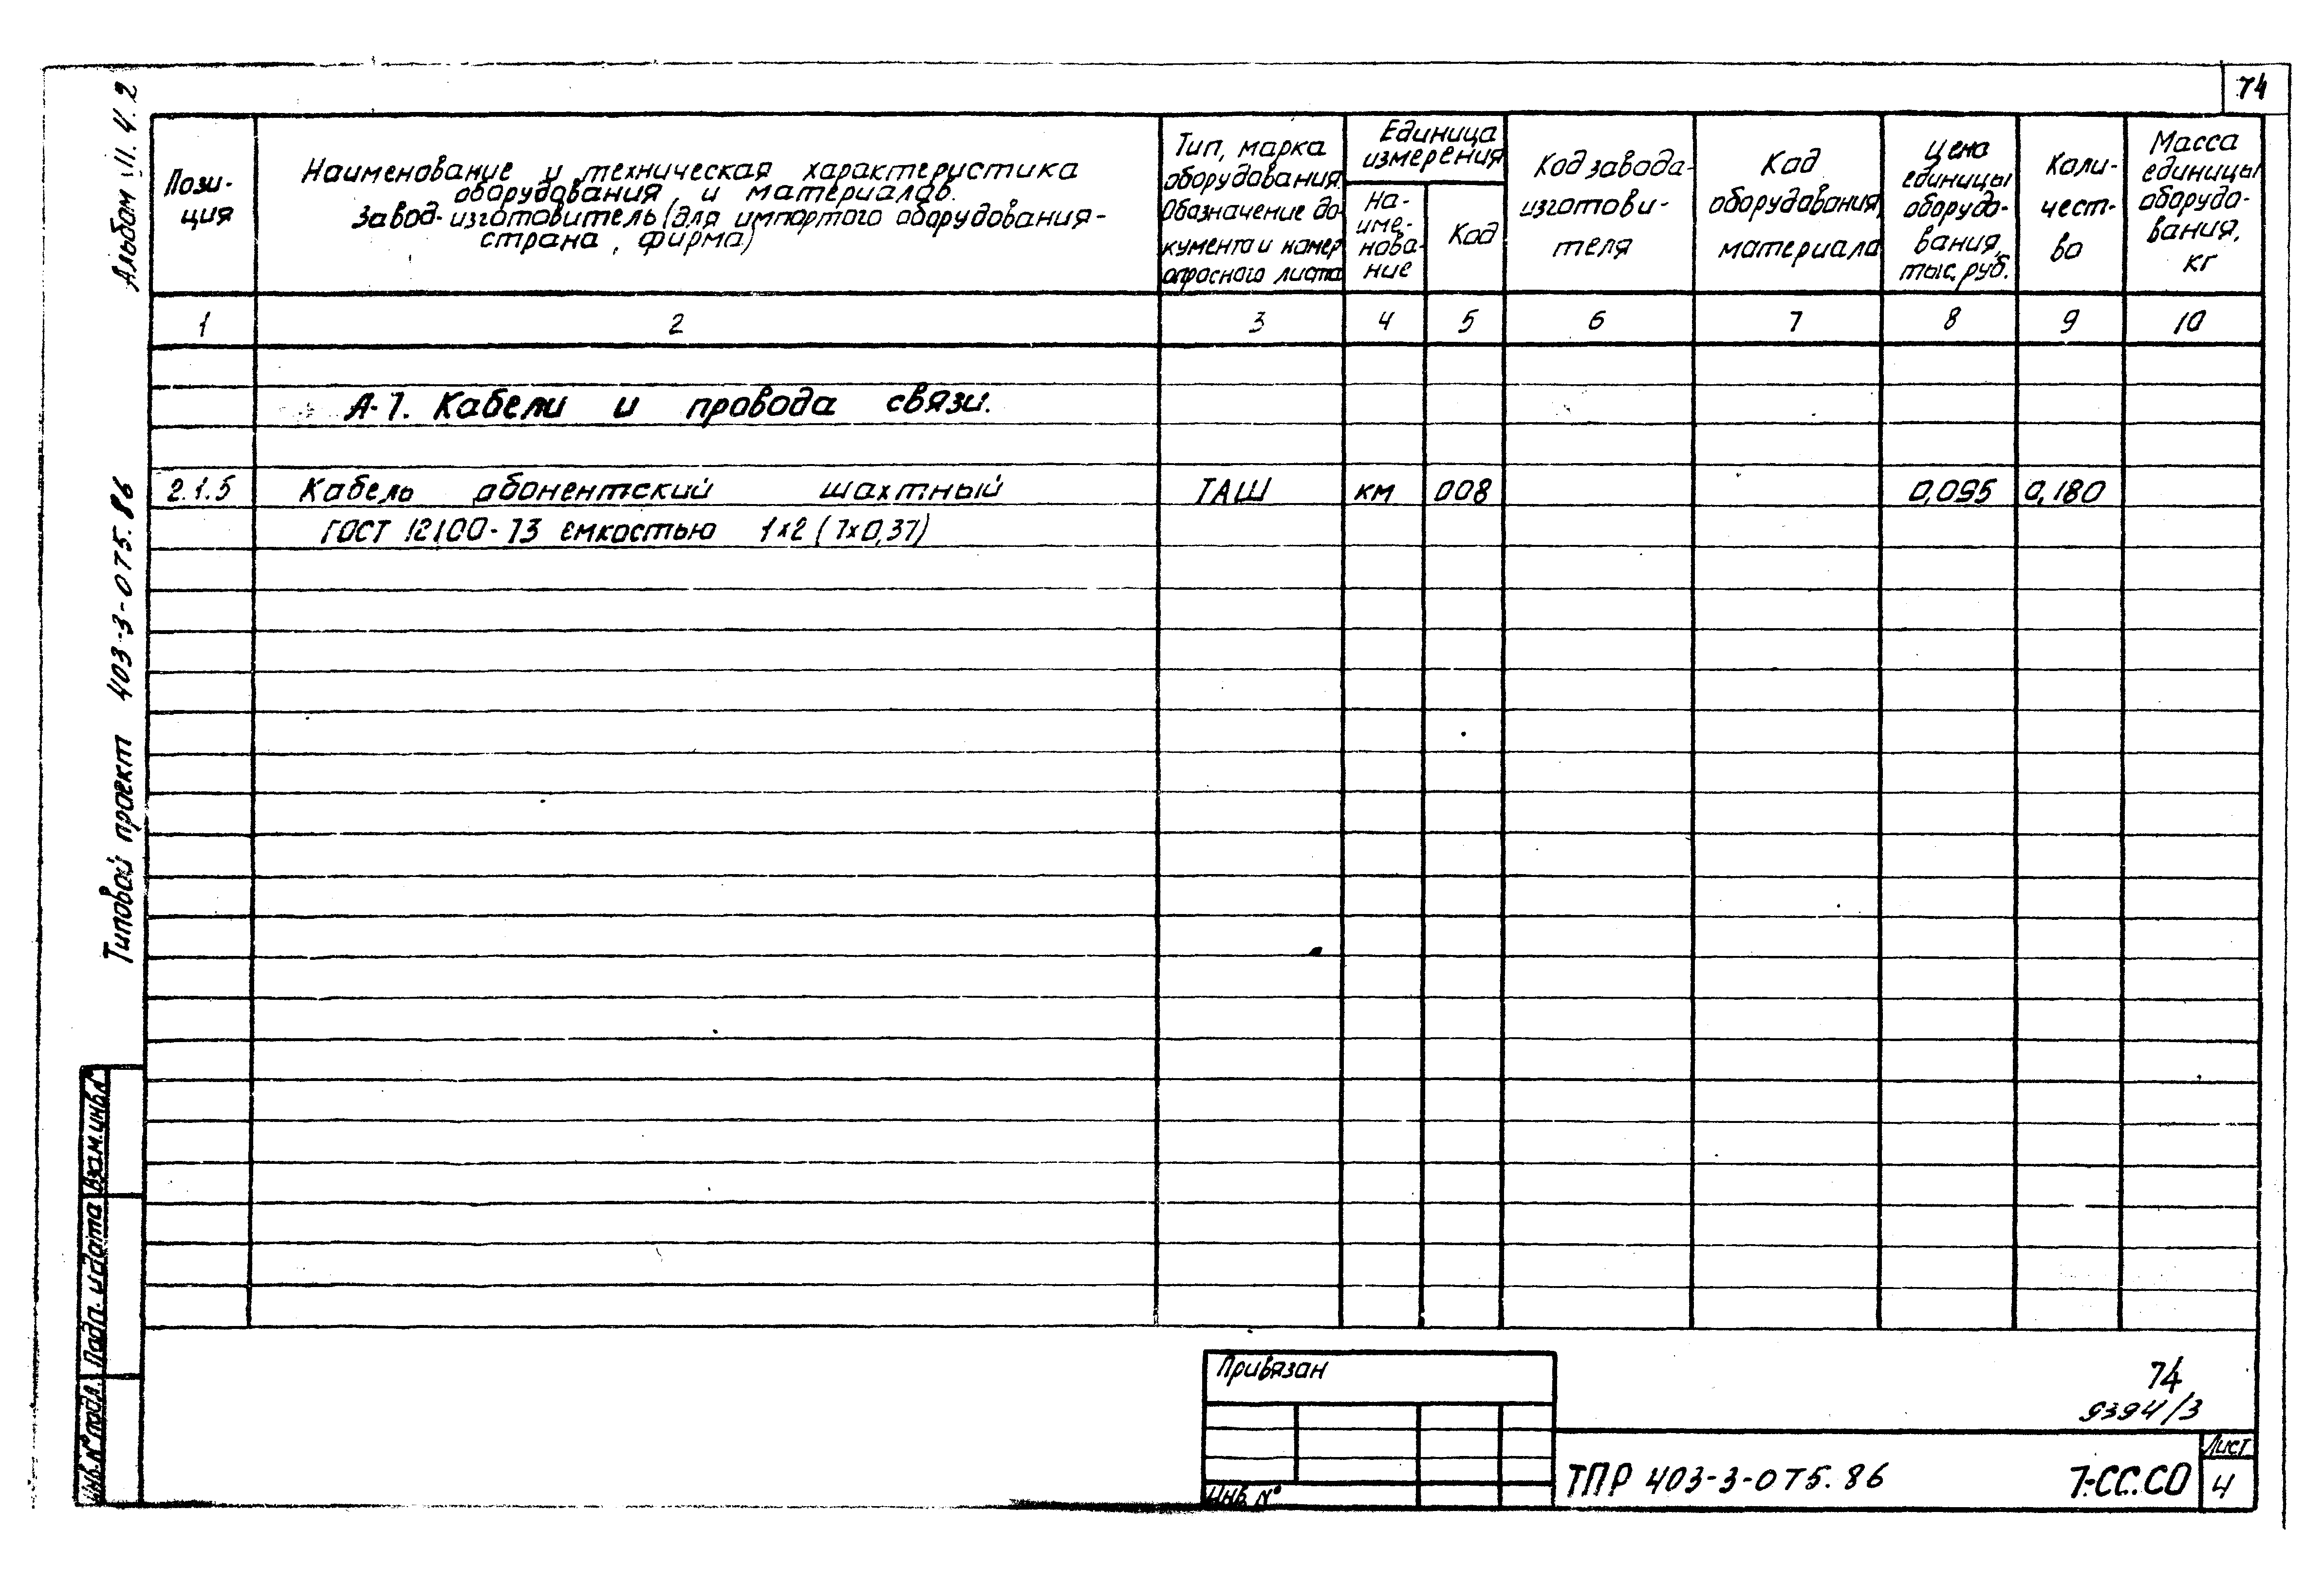 74
Альбом III. Ч. 2
Типовой проект 403-3-075.86
Пози-
ция
Наименование и техническая характеристика
оборудования и материалов.
Завод-изготовитель (для импортого оборудования-
страна, фирма)
Тип, марка
оборудования.
Обозначение до-
кумента и номер
опросного листа
Единица
измерения
На-
име-
нова-
ние
Код
Код завода-
изготови-
теля
Код
оборудования,
материала
Цена
единицы
оборудо-
вания,
тыс. руб.
Коли-
чест-
во
Масса
единицы
оборудо-
вания,
кг
1 2 3 4 5 6 7 8 9 10
А-7. Кабели и провода связи.
2.1.5 Кабель абонентский шахтный ТАШ км 008 0,095 0,180
ГОСТ 12100-73 емкостью 1х2 (7х0,37)
Взам.инв.№
Подп. и дата
Инв.№ подл.
Привязан
Инв. №
74
9394/3
ТПР 403-3-075.86 7-СС.СО
Лист
4